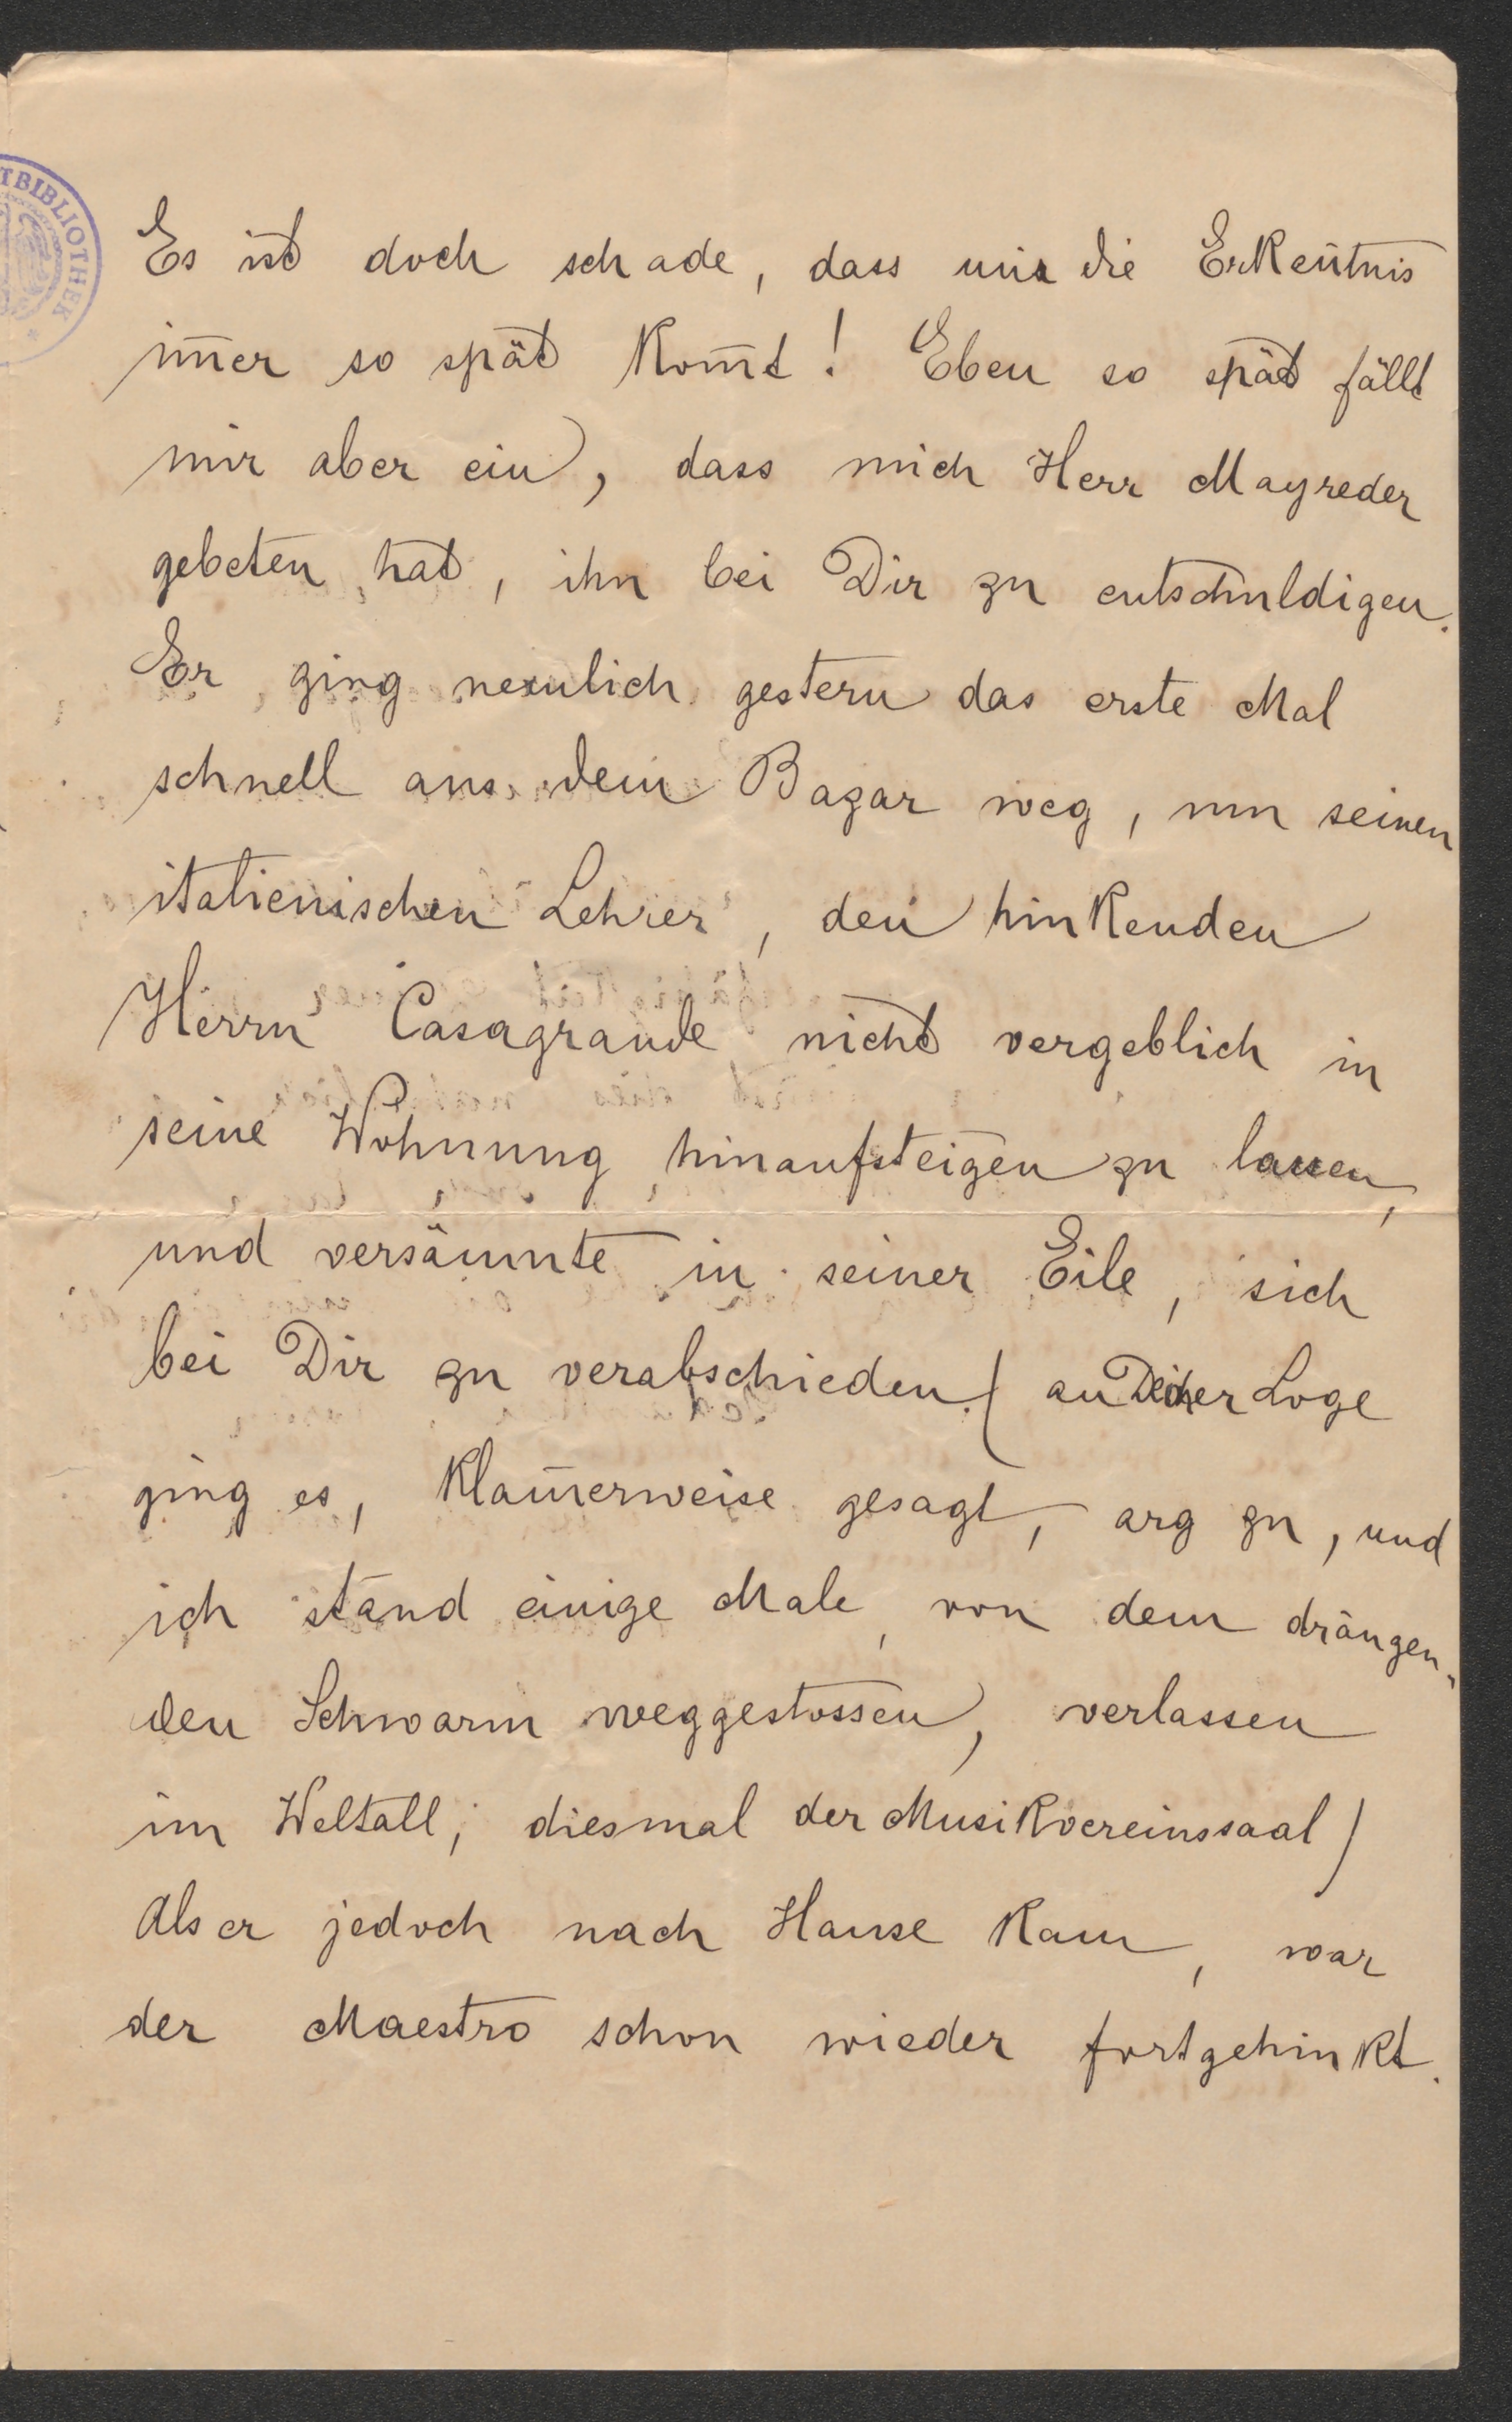 TBIBLIOTHEK
Es ist doch schade, dass mir die Erken̄tnis
im̄er so spät kom̄t! Eben so spät fällt
mir aber ein, dass mich Herr Mayreder
gebeten hat, ihn bei Dir zu entschuldigen.
Er ging nemlich gestern das erste Mal
schnell aus dem Bazar weg, um seinen
italienischen Lehrer, den hinkenden
Herrn Casagrande nicht vergeblich in
seine Wohnung hinaufsteigen zu lassen,
und versäumte in seiner Eile, sich
bei Dir zu verabschieden. (an Deiner Loge
ging es, klam̄erweise gesagt, arg zu, und
ich stand einige Male, von dem drängen-
den Schwarm weggestossen, verlassen
im Weltall; diesmal der Musikvereinssaal)
Als er jedoch nach Hause kam, war
der Maestro schon wieder fortgehinkt.